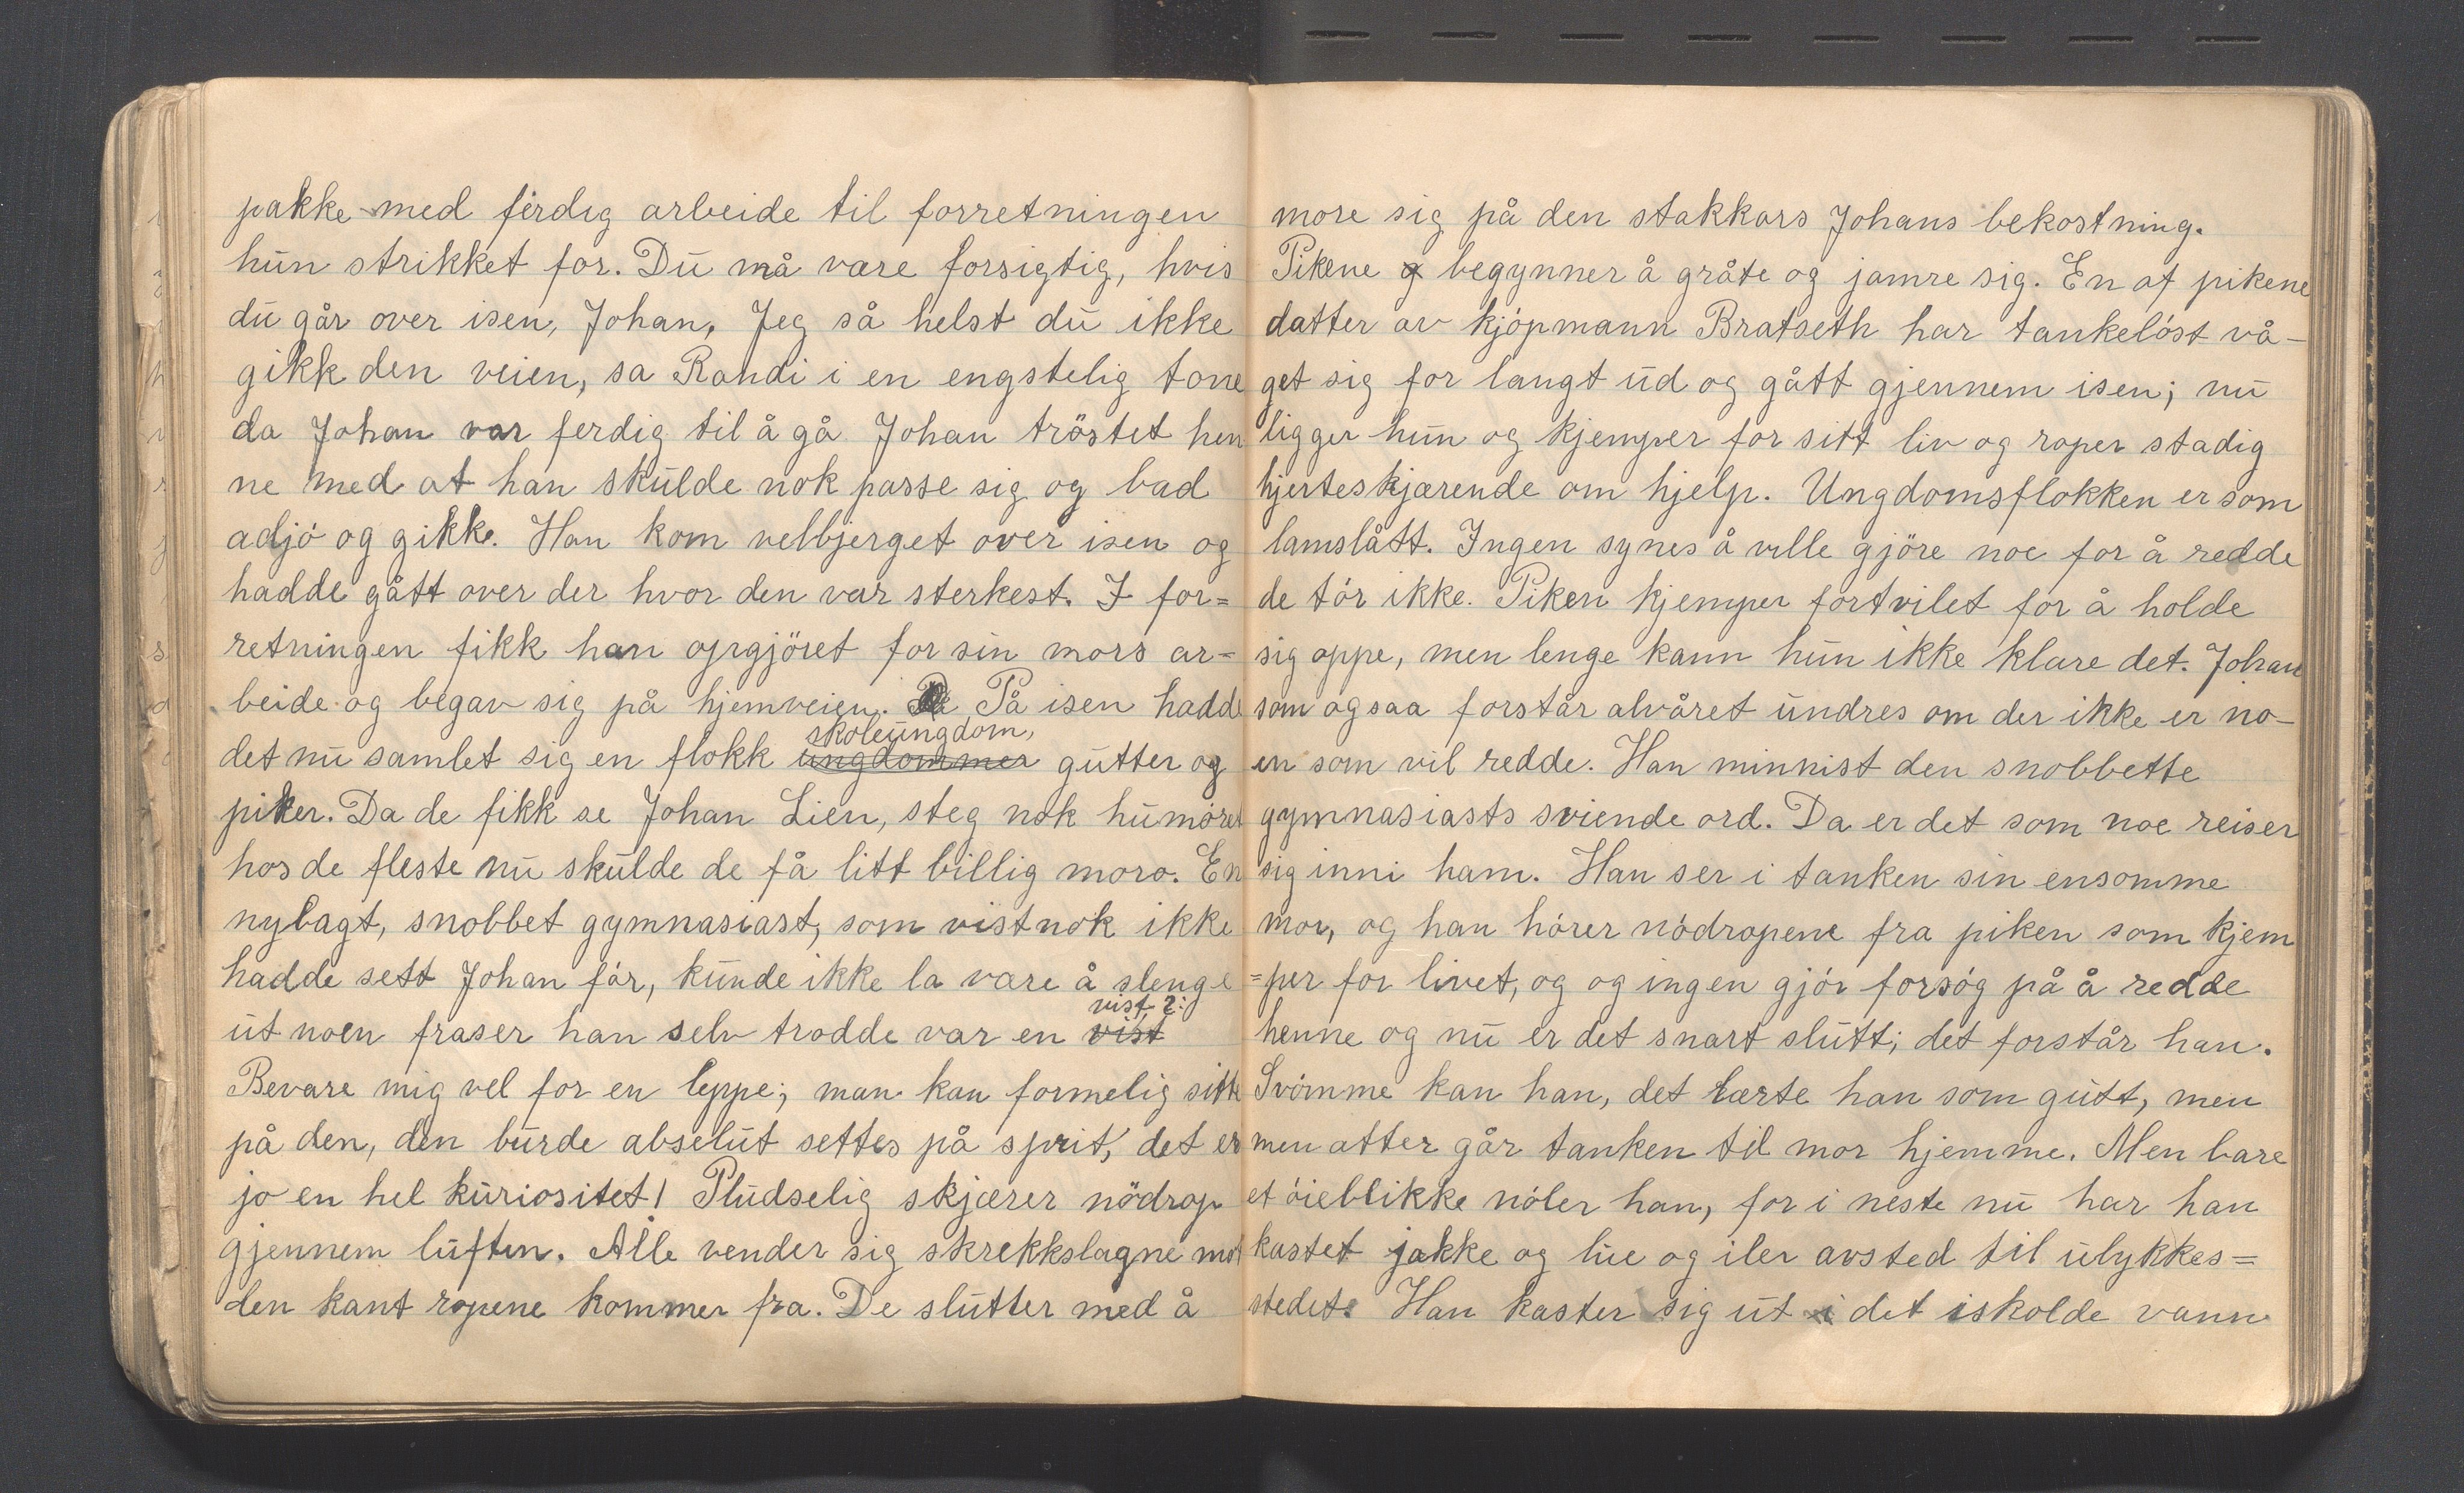 pakke med ferdig arbeide til forretningen
hun strikket for. Du må være forsigtig, hvis
du går over isen, Johan, Jeg så helst du ikke
gikk den veien, sa Randi i en engstelig tone
da Johan var ferdig til å gå Johan tröstet hen
ne med at han skulde nok passe sig og bad
adjö og gikk. Han kom velbjerget over isen og
hadde gått over der hvor den var sterkest. I for=
retningen fikk han opgjöret for sin mors ar=
beide og begav sig på hjemveien. På isen hadde
skoleungdom,
det nu samlet sig en flokk ungdommer gutter og
piker. Da de fikk se Johan Lien, steg nok humöret
hos de fleste nu skulde de få litt billig moro. En
nybagt, snobbet gymnasiast, som vistnok ikke
hadde sett Johan för, kunde ikke la være å slenge
vist, 2:
ut noen fraser han selv trodde var en vist
Bevare mig vel for en leppe; man kan formelig sitte
på den, den burde abselut settes på sprit, det er
jo en hel kuriositet! Pludselig skjærer nödrop
gjennem luften. Alle vender sig skrekkslagne mot
den kant ropene kommer fra. De slutter med å
more sig på den stakkars Johans bekostning.
Pikene og begynner å gråte og jamre sig. En af pikene
datter av kjöpmann Bratseth har tankelöst vå-
get sig for langt ud og gått gjennem isen; nu
ligger hun og kjemper for sitt liv og roper stadig
hjerteskjærende om hjelp. Ungdomsflokken er som
lamslått. Ingen synes å ville gjöre noe for å redde
de tör ikke. Piken kjemper fortvilet for å holde
sig oppe, men lenge kann hun ikke klare det. Johan
som ogsaa forstår alvåret undres om der ikke er no-
en som vil redde. Han minnist den snobbette
gymnasiasts sviende ord. Da er det som noe reiser
sig inni ham. Han ser i tanken sin ensomme
mor, og han hörer nödropene fra piken som kjem
=per for livet, og og ingen gjör forsög på å redde
henne og nu er det snart slutt; det forstår han.
Svömme kan han, det lærte han som gutt, men
men atter går tanken til mor hjemme. Men bare
et öieblikke nöler han, for i neste nu har han
kastet jakke og lue og iler avsted til ulykkes=
stedet. Han kaster sig ut i det iskolde vann